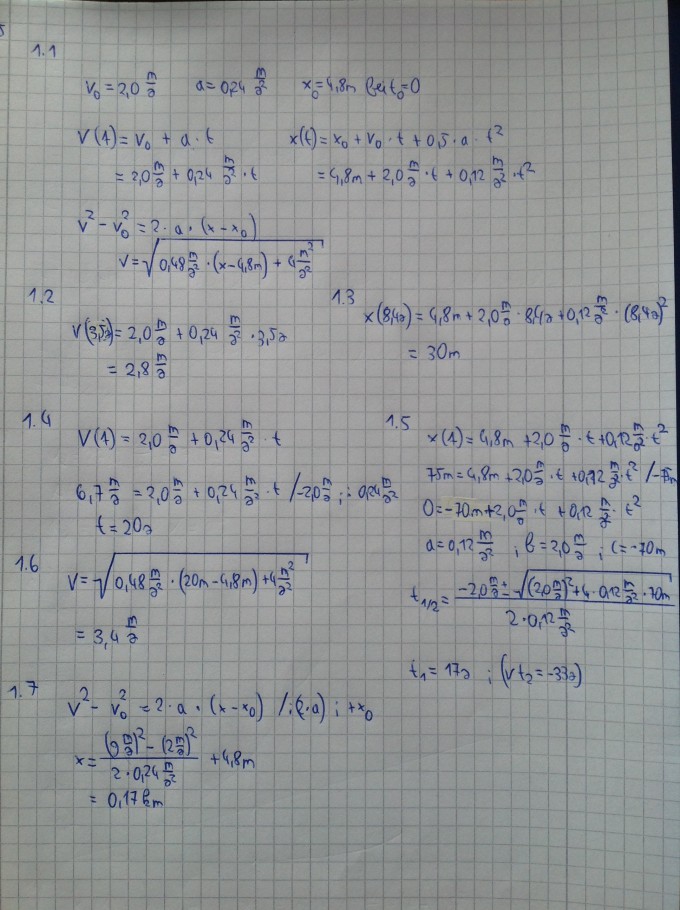 1.1
v₀ = 2,0 m/s a = 0,24 m/s² x₀ = 4,8m bei t₀ = 0
v(t) = v₀ + a · t x(t) = x₀ + v₀ · t + 0,5 · a · t²
= 2,0 m/s + 0,24 m/s² · t = 4,8m + 2,0 m/s · t + 0,12 m/s² · t²
v² - v₀² = 2 · a · (x - x₀)
v = √(0,48 m/s² · (x - 4,8m) + 4 m²/s²)
1.2
v(3,5s) = 2,0 m/s + 0,24 m/s² · 3,5s
= 2,8 m/s
1.3
x(8,4s) = 4,8m + 2,0 m/s · 8,4s + 0,12 m/s² · (8,4s)²
= 30m
1.4
v(t) = 2,0 m/s + 0,24 m/s² · t
6,7 m/s = 2,0 m/s + 0,24 m/s² · t /-2,0 m/s ; : 0,24 m/s²
t = 20s
1.5
x(t) = 4,8m + 2,0 m/s · t + 0,12 m/s² · t²
75m = 4,8m + 2,0 m/s · t + 0,12 m/s² · t² /-75m
0 = -70m + 2,0 m/s · t + 0,12 m/s² · t²
a = 0,12 m/s² ; b = 2,0 m/s ; c = -70m
t₁/₂ = (-2,0 m/s ± √((2,0 m/s)² + 4 · 0,12 m/s² · 70m)) / (2 · 0,12 m/s²)
t₁ = 17s ; (v t₂ = -33s)
1.6
v = √(0,48 m/s² · (20m - 4,8m) + 4 m²/s²)
= 3,4 m/s
1.7
v² - v₀² = 2 · a · (x - x₀) /:(2·a) ; +x₀
x = ((9 m/s)² - (2 m/s)²) / (2 · 0,24 m/s²) + 4,8m
= 0,17km